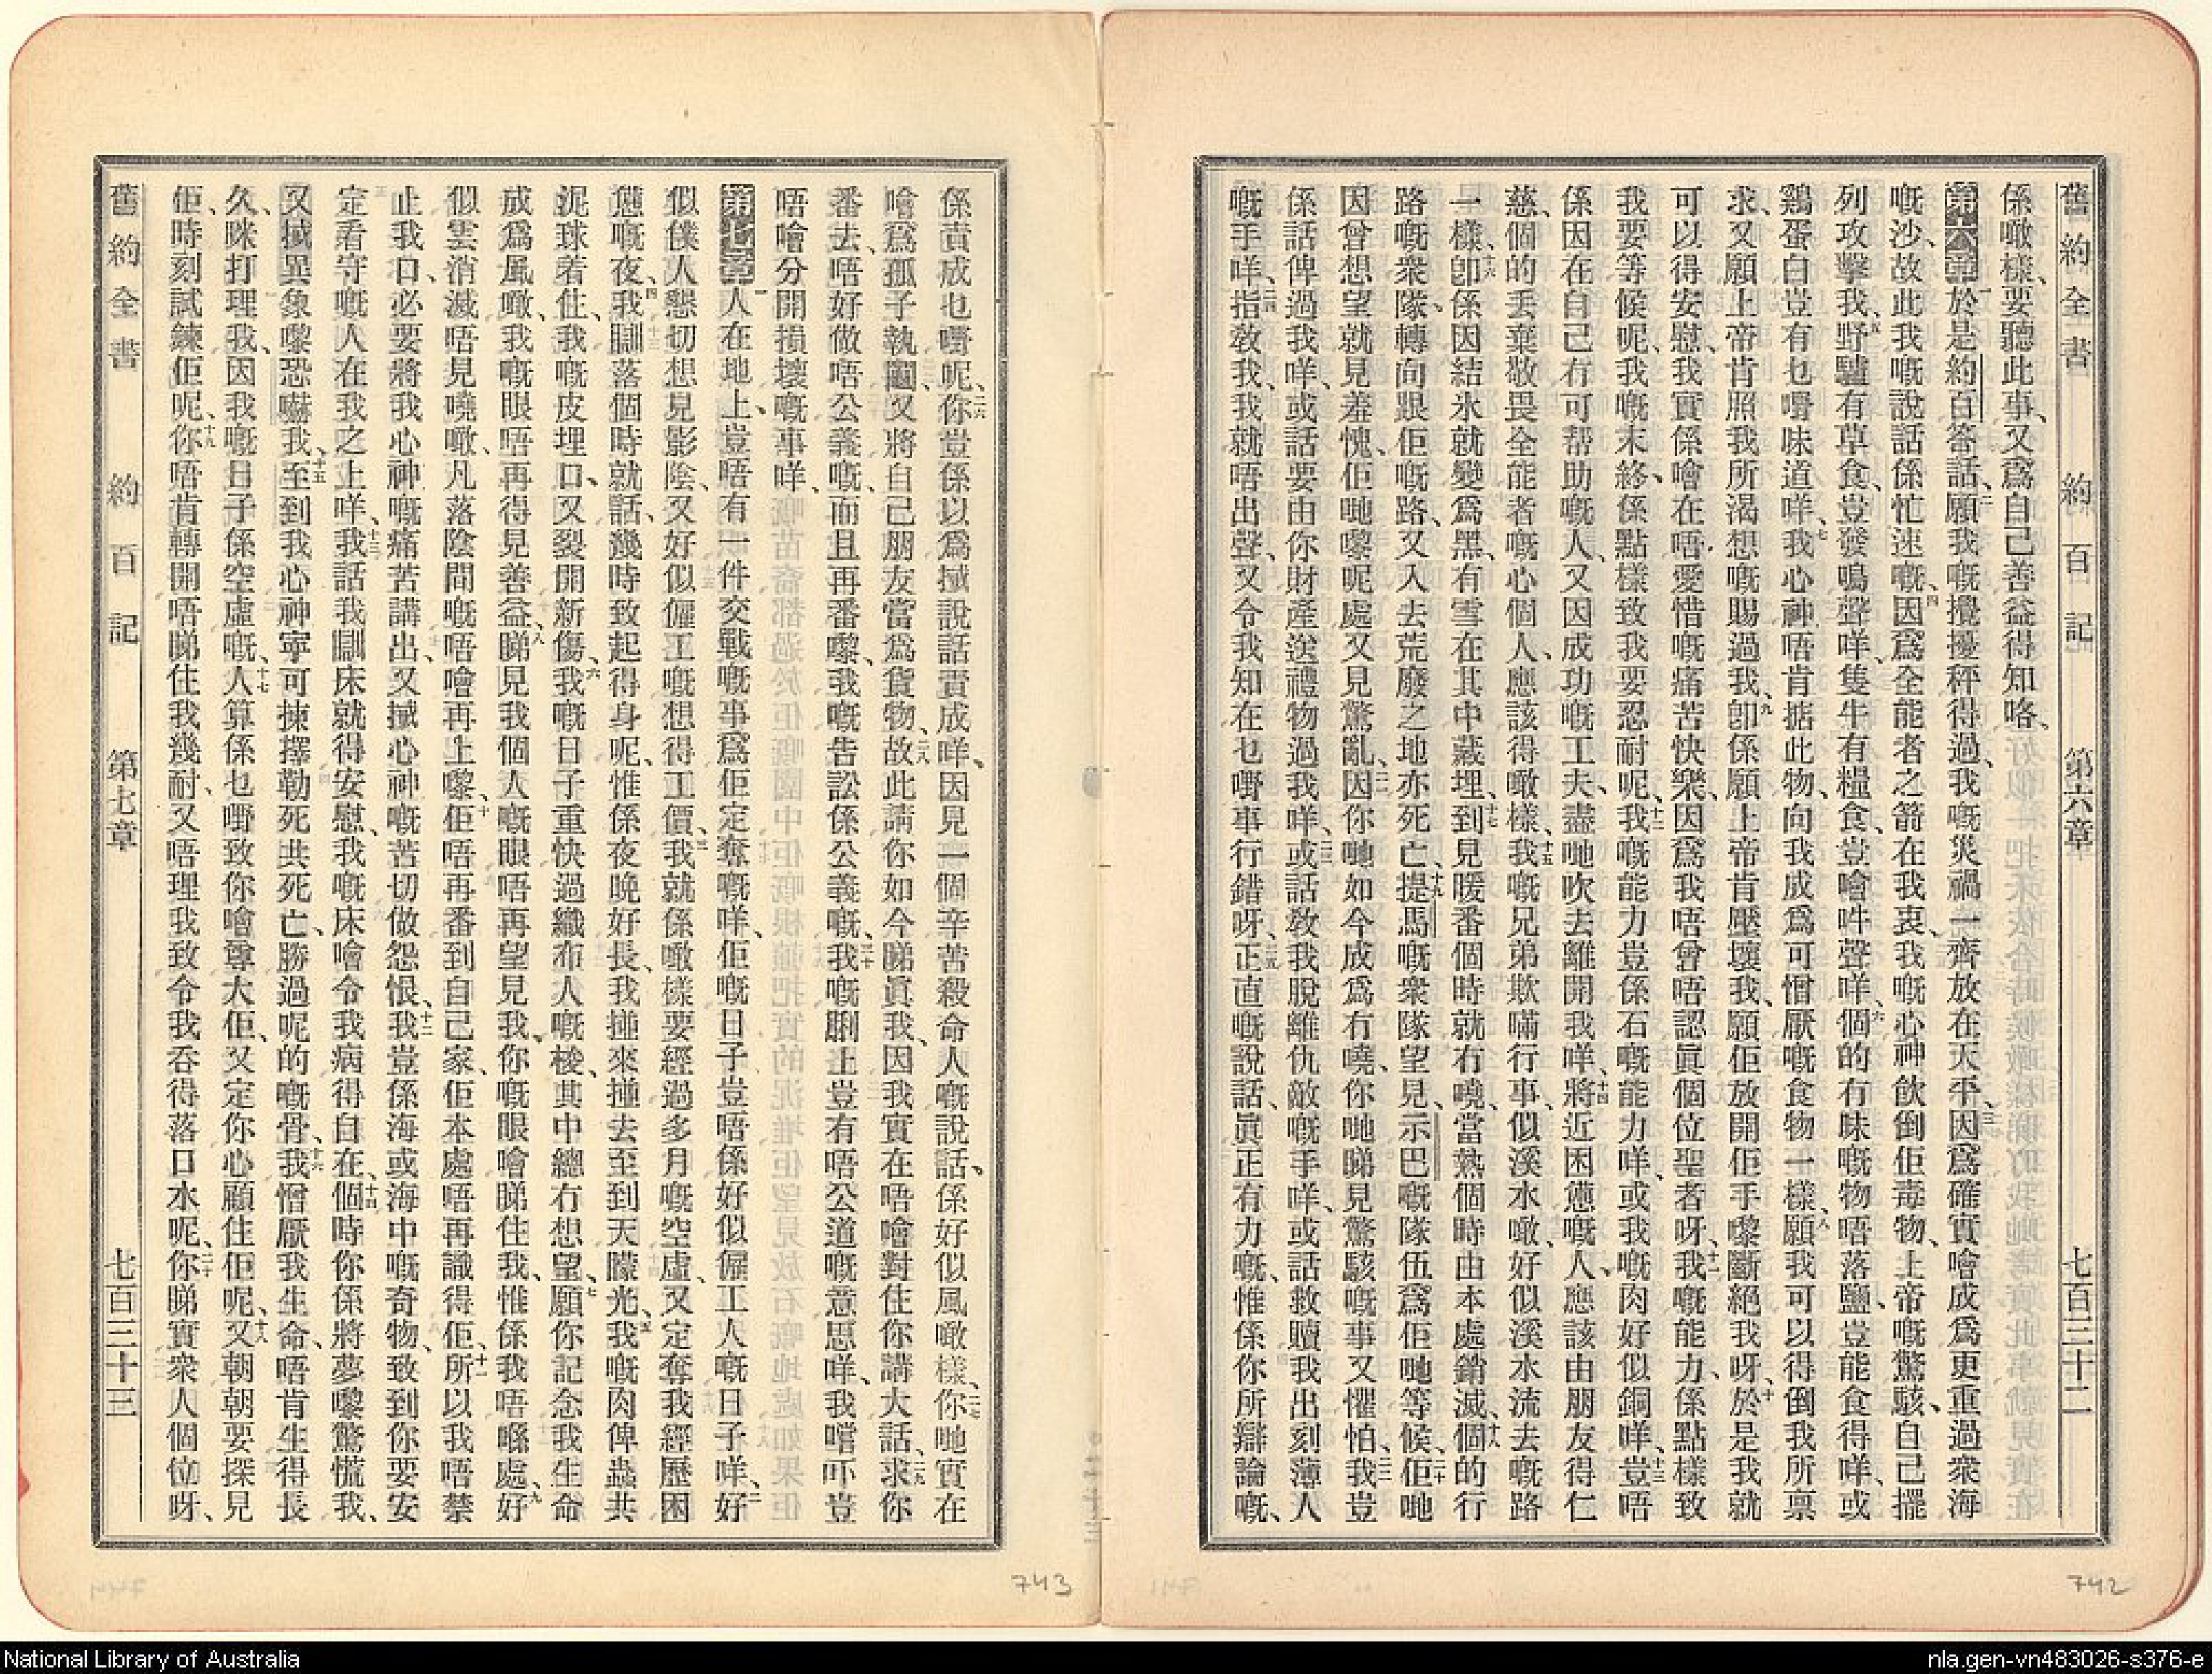 舊約全書 約百記 第六章 七百三十二
係噉樣、要聽此事、又爲自己善益得知咯、
第六章一於是約百答話、二願我嘅攪擾秤得過、我嘅災禍一齊放在天平、三因爲確實噲成爲更重過衆海
嘅沙、故此我嘅說話係忙速嘅、四因爲全能者之箭在我裏、我嘅心神飲倒佢毒物、上帝嘅驚駭、自己擺
列攻擊我、五野驢有草食、豈發鳴聲咩、隻牛有糧食、豈噲吽聲咩、六個的冇味嘅物唔落鹽、豈能食得咩、或
鷄蛋白豈有乜嘢味道咩、七我心神唔肯掂此物、向我成爲可憎厭嘅食物一樣、八願我可以得倒我所禀
求、又願上帝肯照我所渴想嘅賜過我、九卽係願上帝肯壓壞我、願佢放開佢手嚟斷絕我呀、十於是我就
可以得安慰、我實係噲在唔愛惜嘅痛苦快樂、因爲我唔曾唔認眞個位聖者呀、十一我嘅能力、係點樣致
我要等候呢、我嘅末終、係點樣致我要忍耐呢、十二我嘅能力豈係石嘅能力咩、或我嘅肉好似銅咩、十三豈唔
係因在自己冇可帮助嘅人、又因成功嘅工夫、盡哋吹去離開我咩、十四將近困憊嘅人、應該由朋友得仁
慈、個的丢棄敬畏全能者嘅心個人、應該得噉樣、十五我嘅兄弟欺瞞行事、似溪水噉、好似溪水流去嘅路
一樣、十六卽係因結氷就變爲黑、有雪在其中藏埋、十七到見暖番個時就冇嘵、當熱個時由本處銷滅、十八個的行
路嘅衆隊、轉向跟佢嘅路、又入去荒廢之地亦死亡、十九提馬嘅衆隊望見、示巴嘅隊伍爲佢哋等候、二十佢哋
因曾想望就見羞愧、佢哋嚟呢處又見驚亂、二一因你哋如今成爲冇嘵、你哋睇見驚駭嘅事又懼怕、二二我豈
係話俾過我咩、或話要由你財產送禮物過我咩、二三或話教我脫離仇敵嘅手咩、或話救贖我出刻薄人
嘅手咩、二四指教我、我就唔出聲、又令我知在乜嘢事行錯呀、二五正直嘅說話、眞正有力嘅、惟係你所辯論嘅、
係責成乜嘢呢、二六你豈係以爲搣說話責成咩、因見一個辛苦殺命人嘅說話、係好似風噉樣、二七你哋實在
噲爲孤子執鬮、又將自己朋友當爲貨物、二八故此請你如今睇眞我、因我實在唔噲對住你講大話、二九求你
番去、唔好做唔公義嘅、而且再番嚟、我嘅告訟係公義嘅、三十我嘅脷上豈有唔公道嘅意思咩、我嚐吓豈
唔噲分開損壞嘅事咩、
第七章一人在地上、豈唔有一件交戰嘅事爲佢定奪嘅咩、佢嘅日子豈唔係好似僱工人嘅日子咩、二好
似僕人懇切想見影陰、又好似僱工嘅想得工價、三我就係噉樣要經過多月嘅空虛、又定奪我經歷困
憊嘅夜、四我瞓落個時就話、幾時致起得身呢、惟係夜晚好長、我摙來摙去至到天朦光、五我嘅肉俾蟲共
泥球着住、我嘅皮埋口、又裂開新傷、六我嘅日子重快過織布人嘅梭、其中總冇想望、七願你記念我生命
成爲風噉、我嘅眼唔再得見善益、八睇見我個人嘅眼唔再望見我、你嘅眼噲睇住我、惟係我唔喺處、九好
似雲消滅唔見嘵噉、凡落陰間嘅唔噲再上嚟、十佢唔再番到自己家、佢本處唔再識得佢、十一所以我唔禁
止我口、必要將我心神嘅痛苦講出、又搣心神嘅苦切做怨恨、十二我豈係海或海中嘅奇物、致到你要安
定看守嘅人在我之上咩、十三我話我瞓床就得安慰、我嘅床噲令我病得自在、十四個時你係將夢嚟驚慌我、
又搣異象嚟恐嚇我、十五至到我心神寧可揀擇勒死共死亡、勝過呢的嘅骨、十六我憎厭我生命、唔肯生得長
久、咪打理我、因我嘅日子係空虛嘅、十七人算係乜嘢致你噲尊大佢、又定你心顧住佢呢、十八又朝朝要探見
佢、時刻試鍊佢呢、十九你唔肯轉開唔睇住我幾耐、又唔理我致令我吞得落口水呢、二十你睇實衆人個位呀、
舊約全書 約百記 第七章 七百三十三
743
742
National Library of Australia
nla.gen-vn483026-s376-e